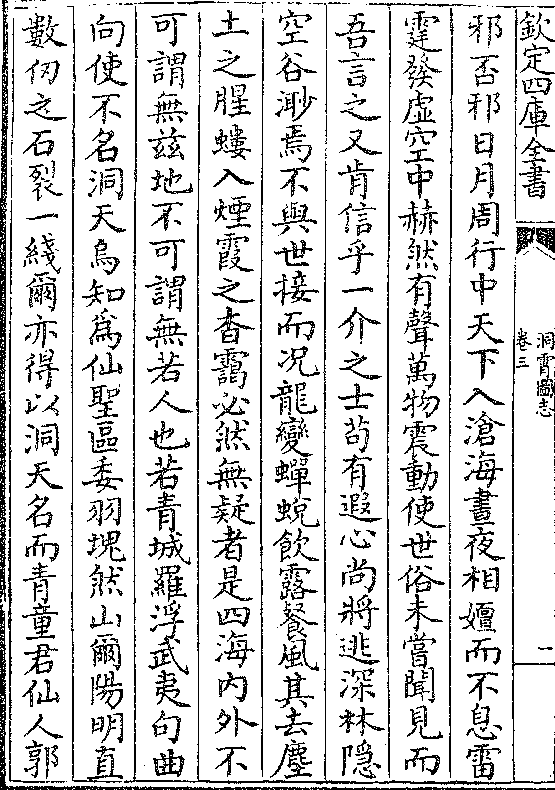 欽定四庫全書
洞霄圖志
卷三
一
邪否邪日月周行中天下入滄海晝夜相嬗而不息雷
霆發虛空中赫然有聲萬物震動使世俗未嘗聞見而
吾言之又肯信乎一介之士苟有遐心尚將逃深林隱
空谷渺焉不與世接而况龍變蟬蛻飲露餐風其去塵
土之腥螻入煙霞之杳靄必然無疑者是四海内外不
可謂無兹地不可謂無若人也若青城羅浮武夷句曲
向使不名洞天烏知為仙聖區委羽塊然山爾陽明直
數仞之石裂一綫爾亦得以洞天名而青童君仙人郭